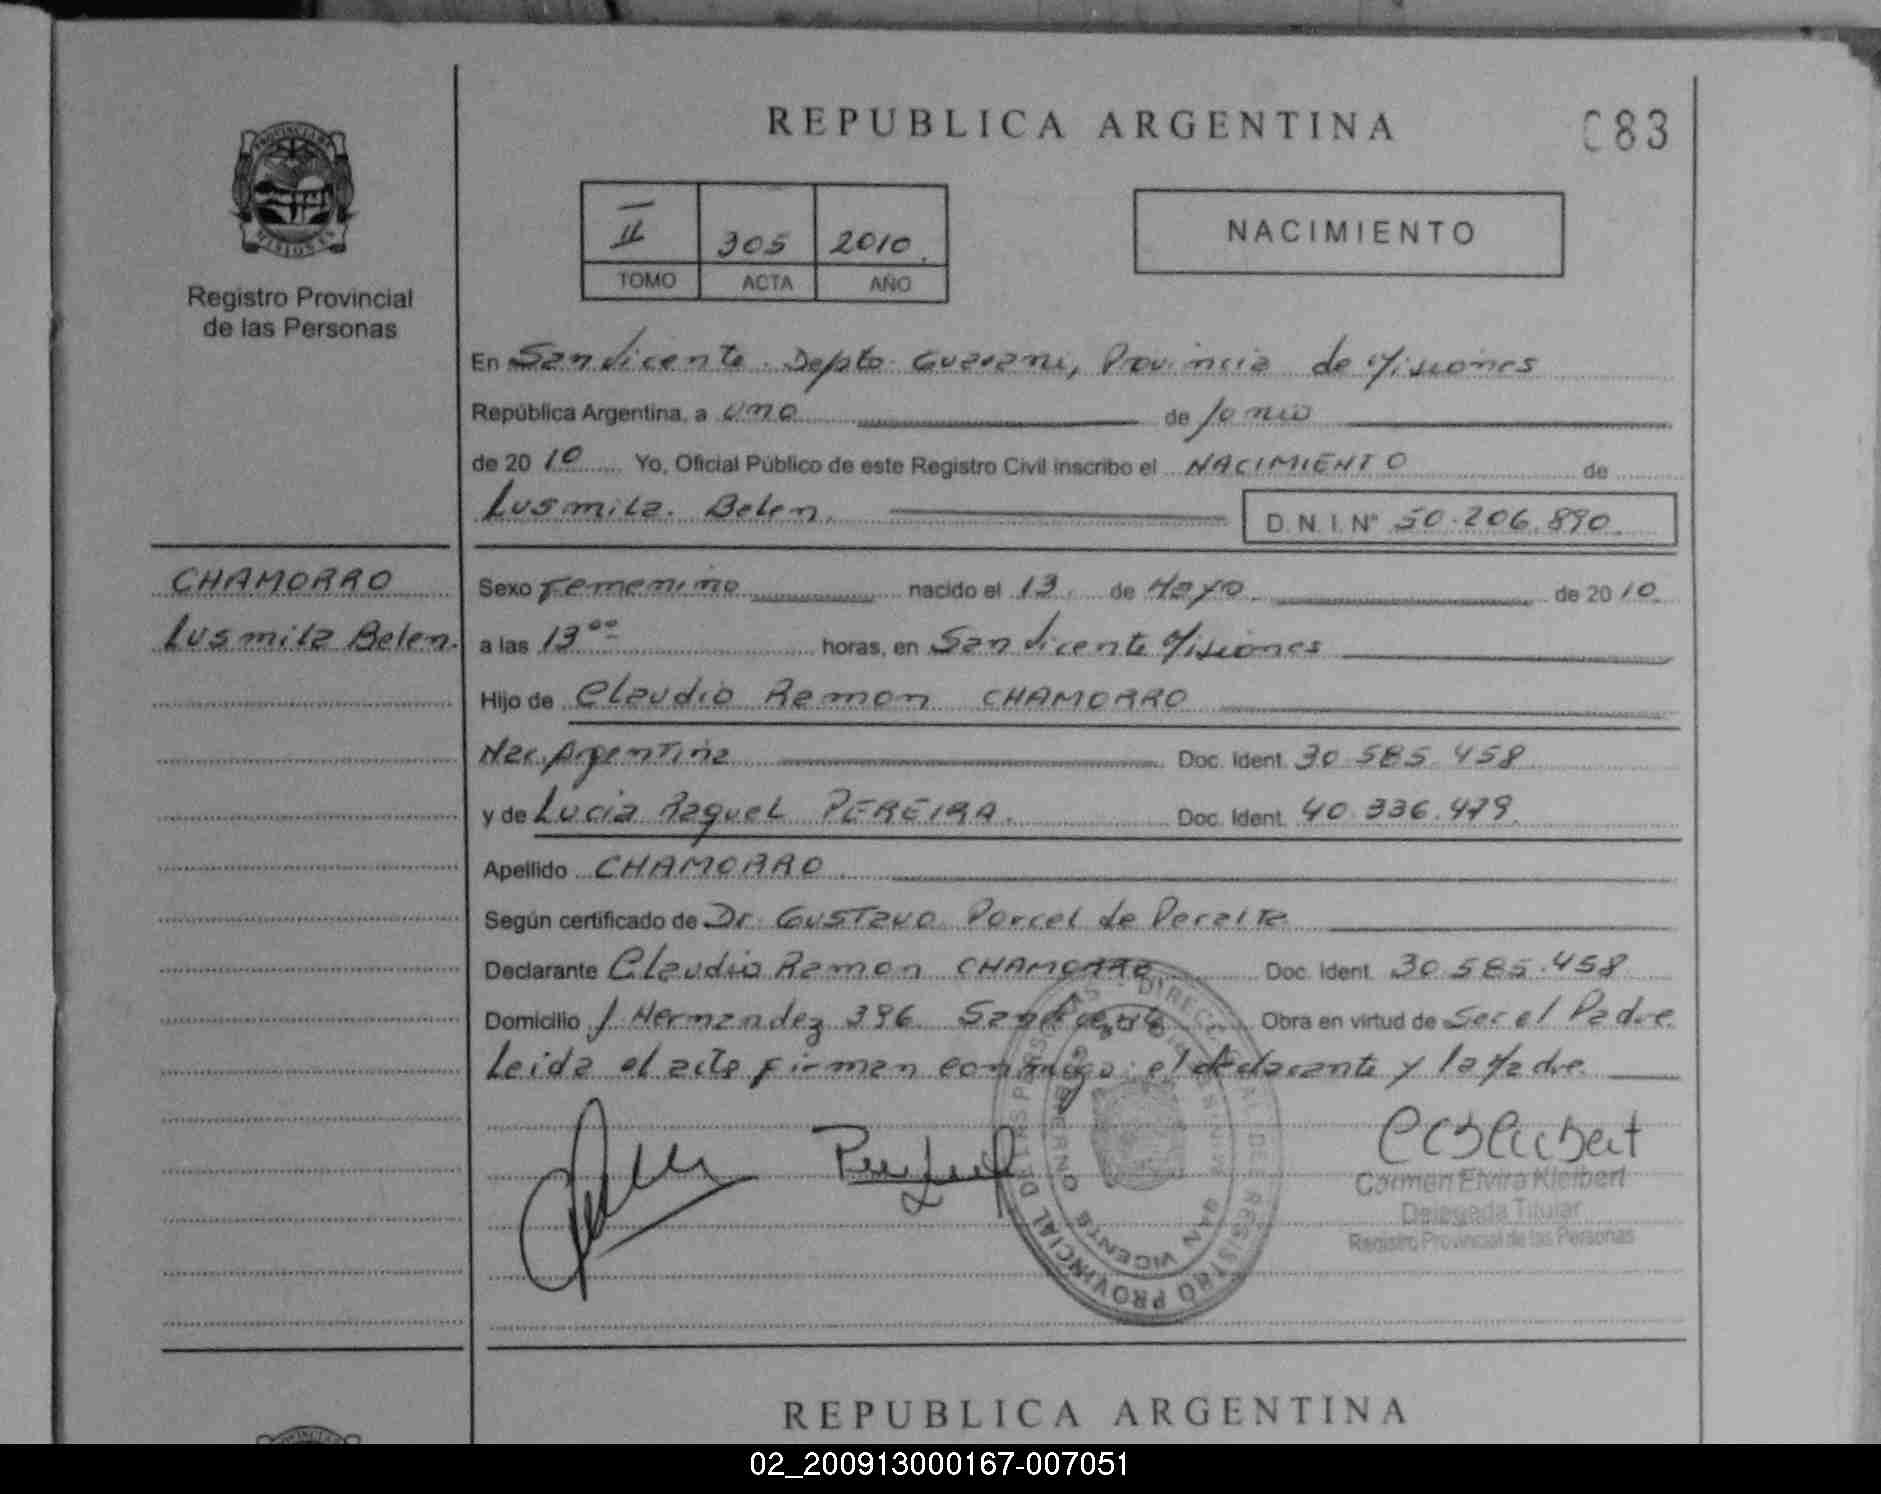 REPUBLICA ARGENTINA
083
PROVINCIA DE
MISIONES
Registro Provincial
de las Personas
II 305 2010.
TOMO ACTA AÑO
NACIMIENTO
En San Vicente. Depto. Guarani, Provincia de Misiones
República Argentina, a uno de Junio
de 2010 Yo, Oficial Público de este Registro Civil inscribo el NACIMIENTO de
Lusmila. Belen. D.N.I.Nº 50.206.890.
CHAMORRO
Lusmila Belen.
Sexo Femenino nacido el 13. de Mayo. de 2010.
a las 13⁰⁰ horas, en San Vicente Misiones
Hijo de Claudio Ramon CHAMORRO
Nac. Argentina Doc. Ident. 30.585.458
y de Lucia Raquel PEREIRA. Doc. Ident. 40.336.479.
Apellido CHAMORRO
Según certificado de Dr. Gustavo Porcel de Peralta
Declarante Claudio Ramon CHAMORRO Doc. Ident. 30.585.458
Domicilio J. Hernandez 396 San Vicente Obra en virtud de Ser el Padre
Leida el acta firman conmigo: el declarante y la Madre.
REGISTRO PROVINCIAL DE LAS PERSONAS
SAN VICENTE
Carmen Elvira Kleibert
Delegada Titular
Registro Provincial de las Personas
REPUBLICA ARGENTINA
02_200913000167-007051